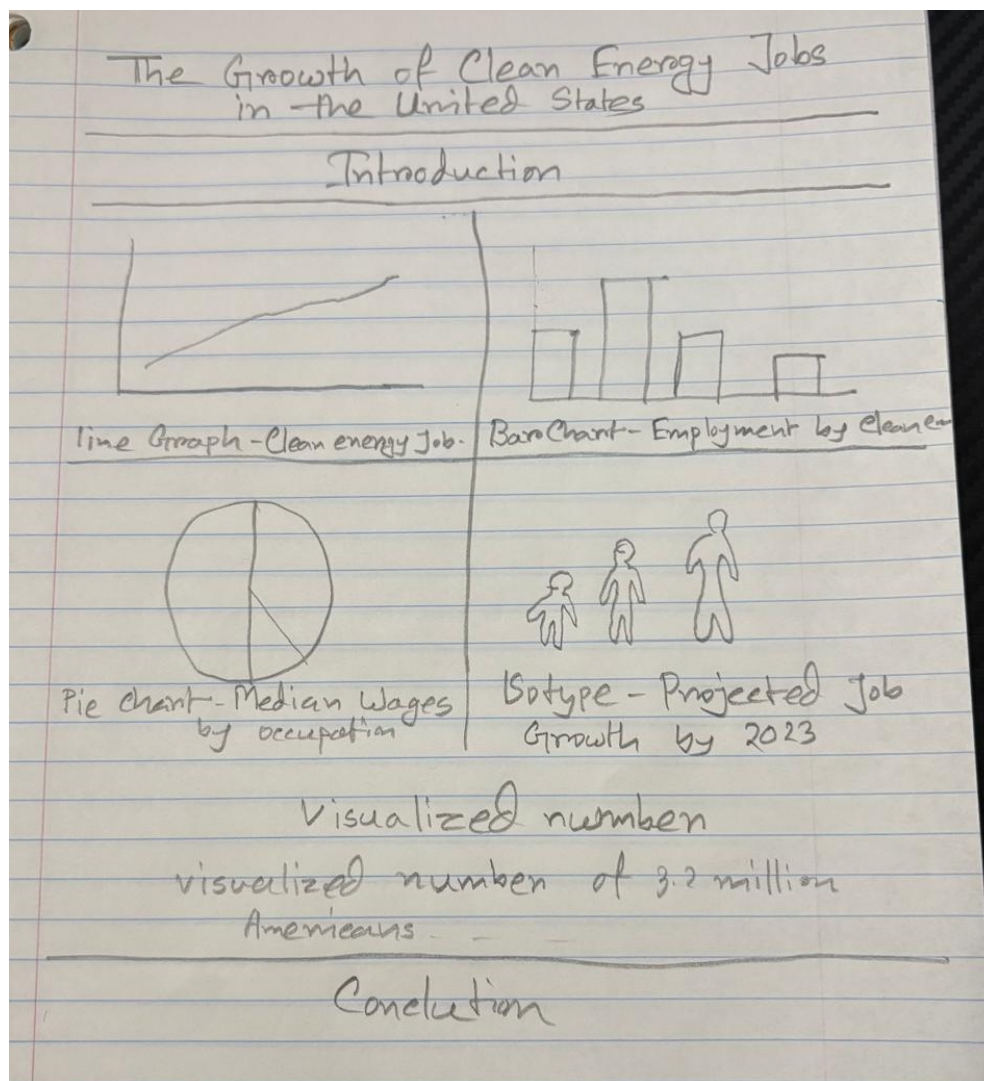 The Growth of Clean Energy Jobs
in the United States
Introduction
line Graph - Clean energy Job.
Bar Chart - Employment by clean en
Pie chart - Median Wages
by occupation
Isotype - Projected Job
Growth by 2023
Visualized number
visualized number of 3.2 million
Americans
Conclution